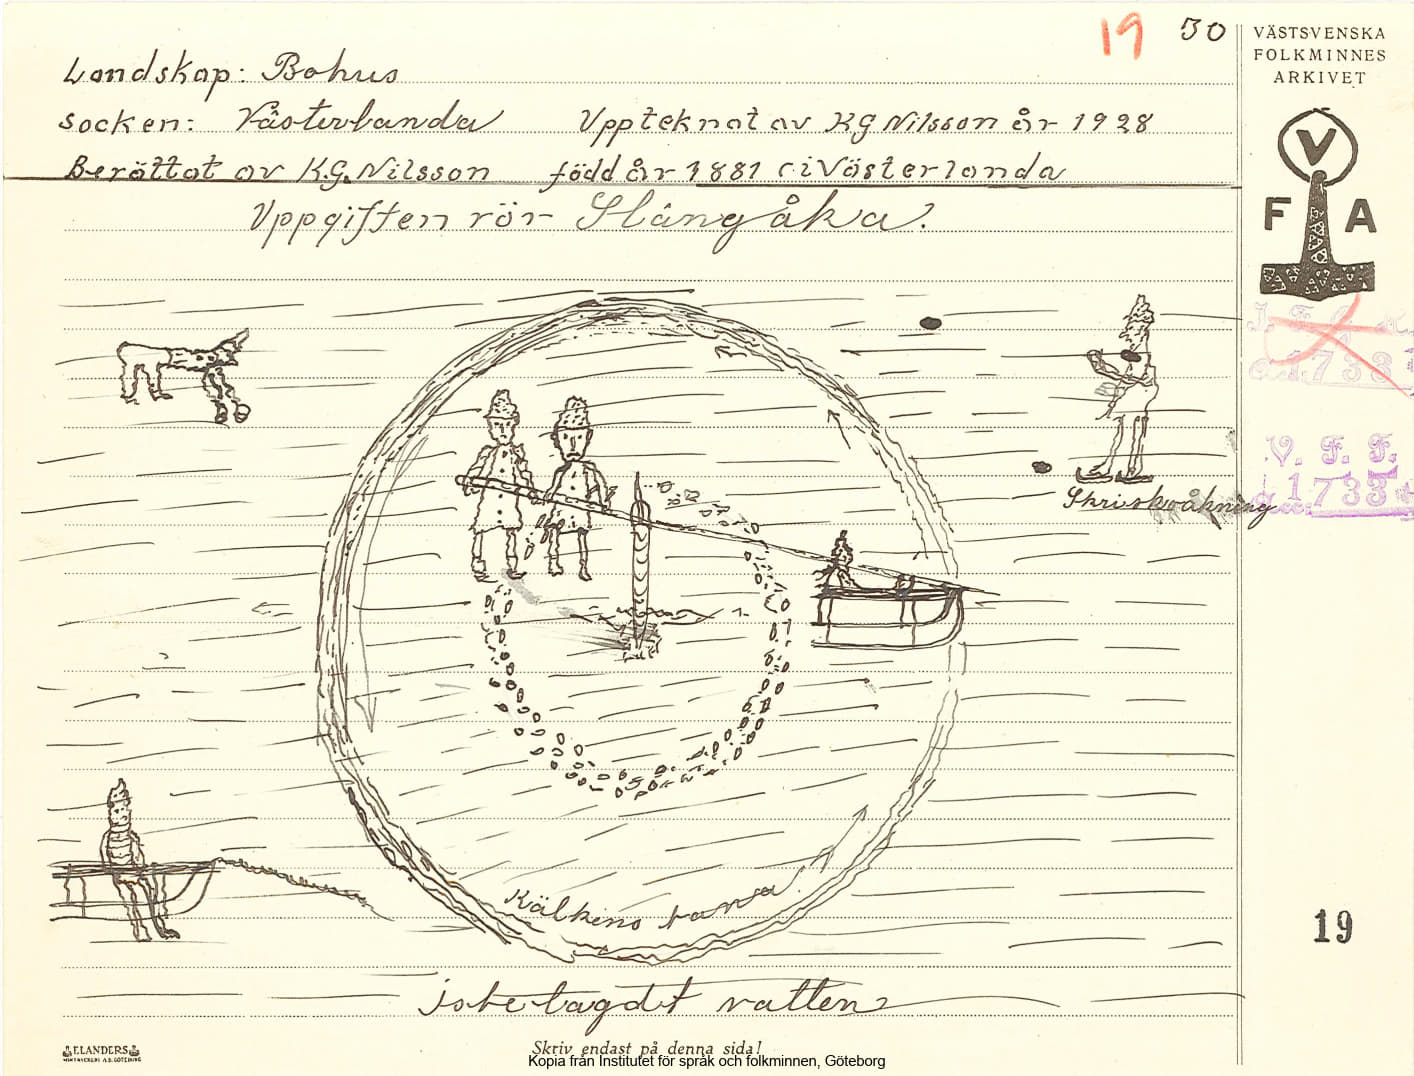 19 30
VÄSTSVENSKA
FOLKMINNES
ARKIVET
Landskap: Bohus
Socken: Västerlanda Uppteknat av KG Nilsson år 1928
Berättat av K.G. Nilsson född år 1881 i Västerlanda
Uppgiften rör Slängåka.
V
F A
V. F. F.
1733
Skriskoåkning
Kälkens bana
19
isbelagdt vatten
ELANDERS
Skriv endast på denna sida!
Kopia från Institutet för språk och folkminnen, Göteborg